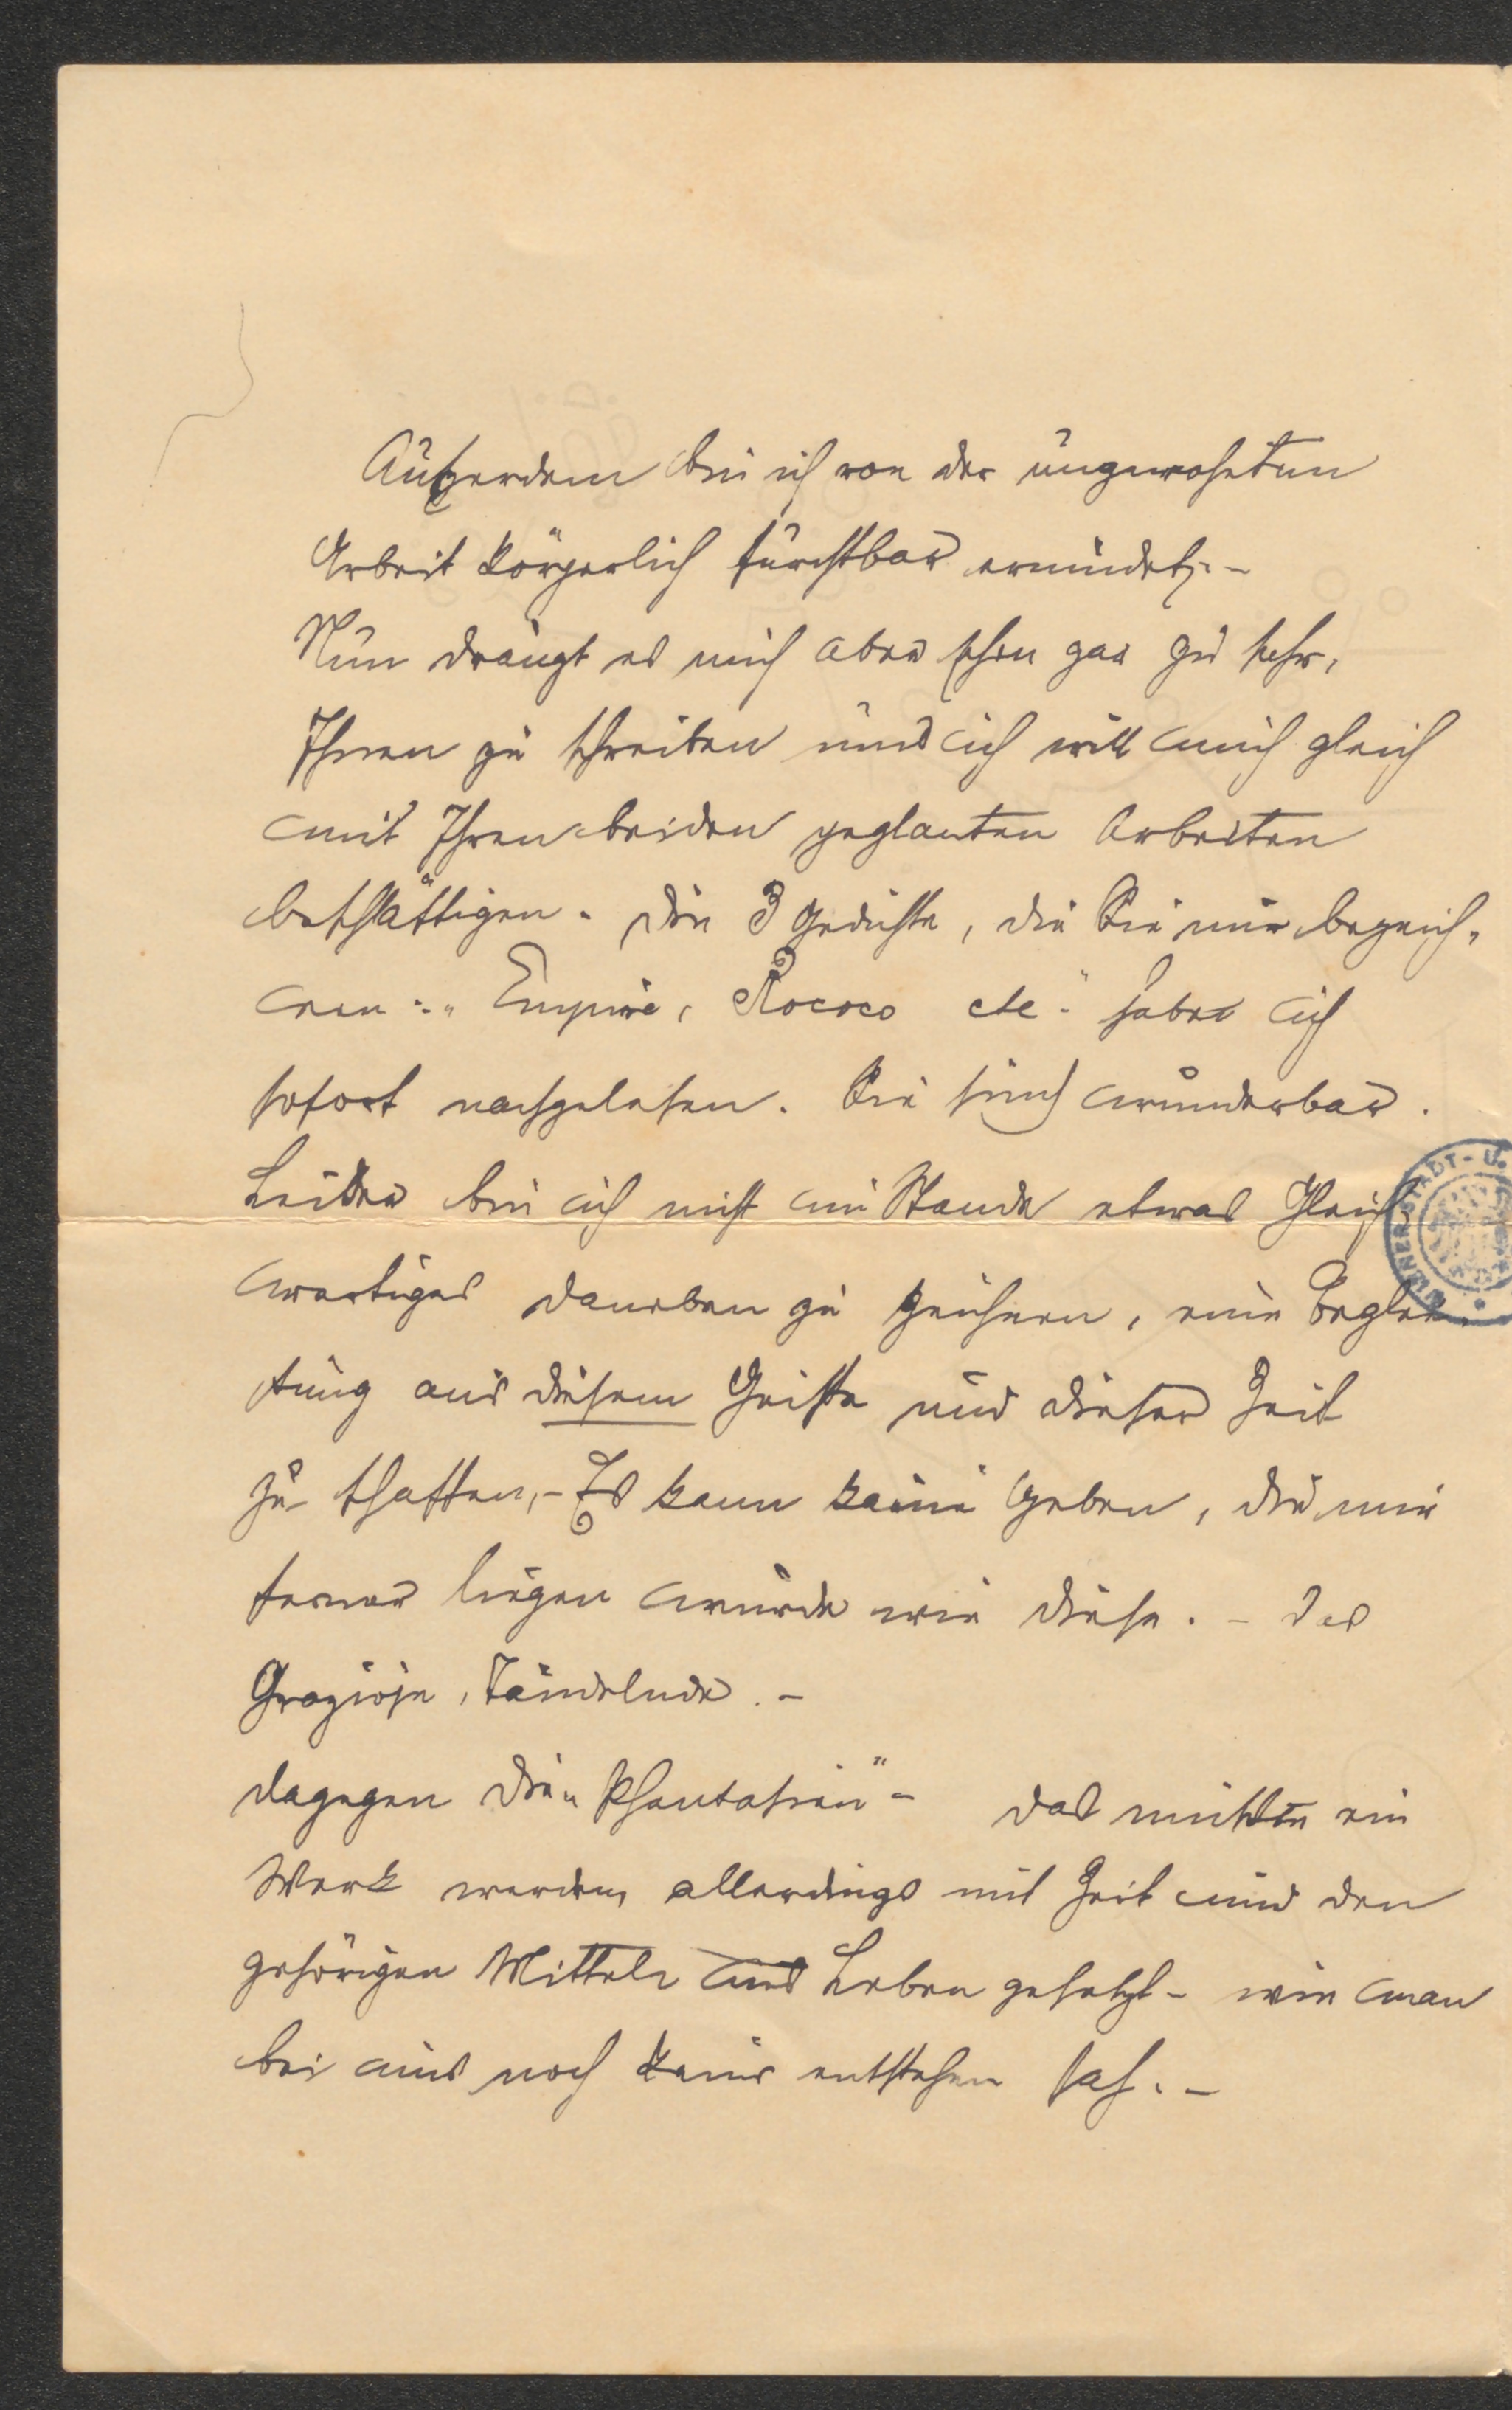 Außerdem bin ich von der ungewohnten
Arbeit körperlich furchtbar ermüdet. –
Nun drängt es mich aber schon gar zu sehr,
Ihnen zu schreiben und ich will mich gleich
mit Ihren beiden geplanten Arbeiten
beschäftigen. Die 3 Gedichte, die Sie mir bezeich-
nen: „Empire, Rococo etc" habe ich
sofort nachgelesen. Sie sind wunderbar.
Leider bin ich nicht im Stande etwas Gleich
wertiges daneben zu zeichnen, eine Beglei-
tung aus diesem Geiste und dieser Zeit
zu schaffen, – Es kann keine geben, die mir
ferner liegen würde wie diese. – Das
Graziöse, Tändelnde. –
dagegen die „Phantasien" – das müßte ein
Werk werden, allerdings mit Zeit und den
gehörigen Mitteln ins Leben gesetzt – wie man
bei uns noch keins entstehen sah. –
WIENER STADT- U.